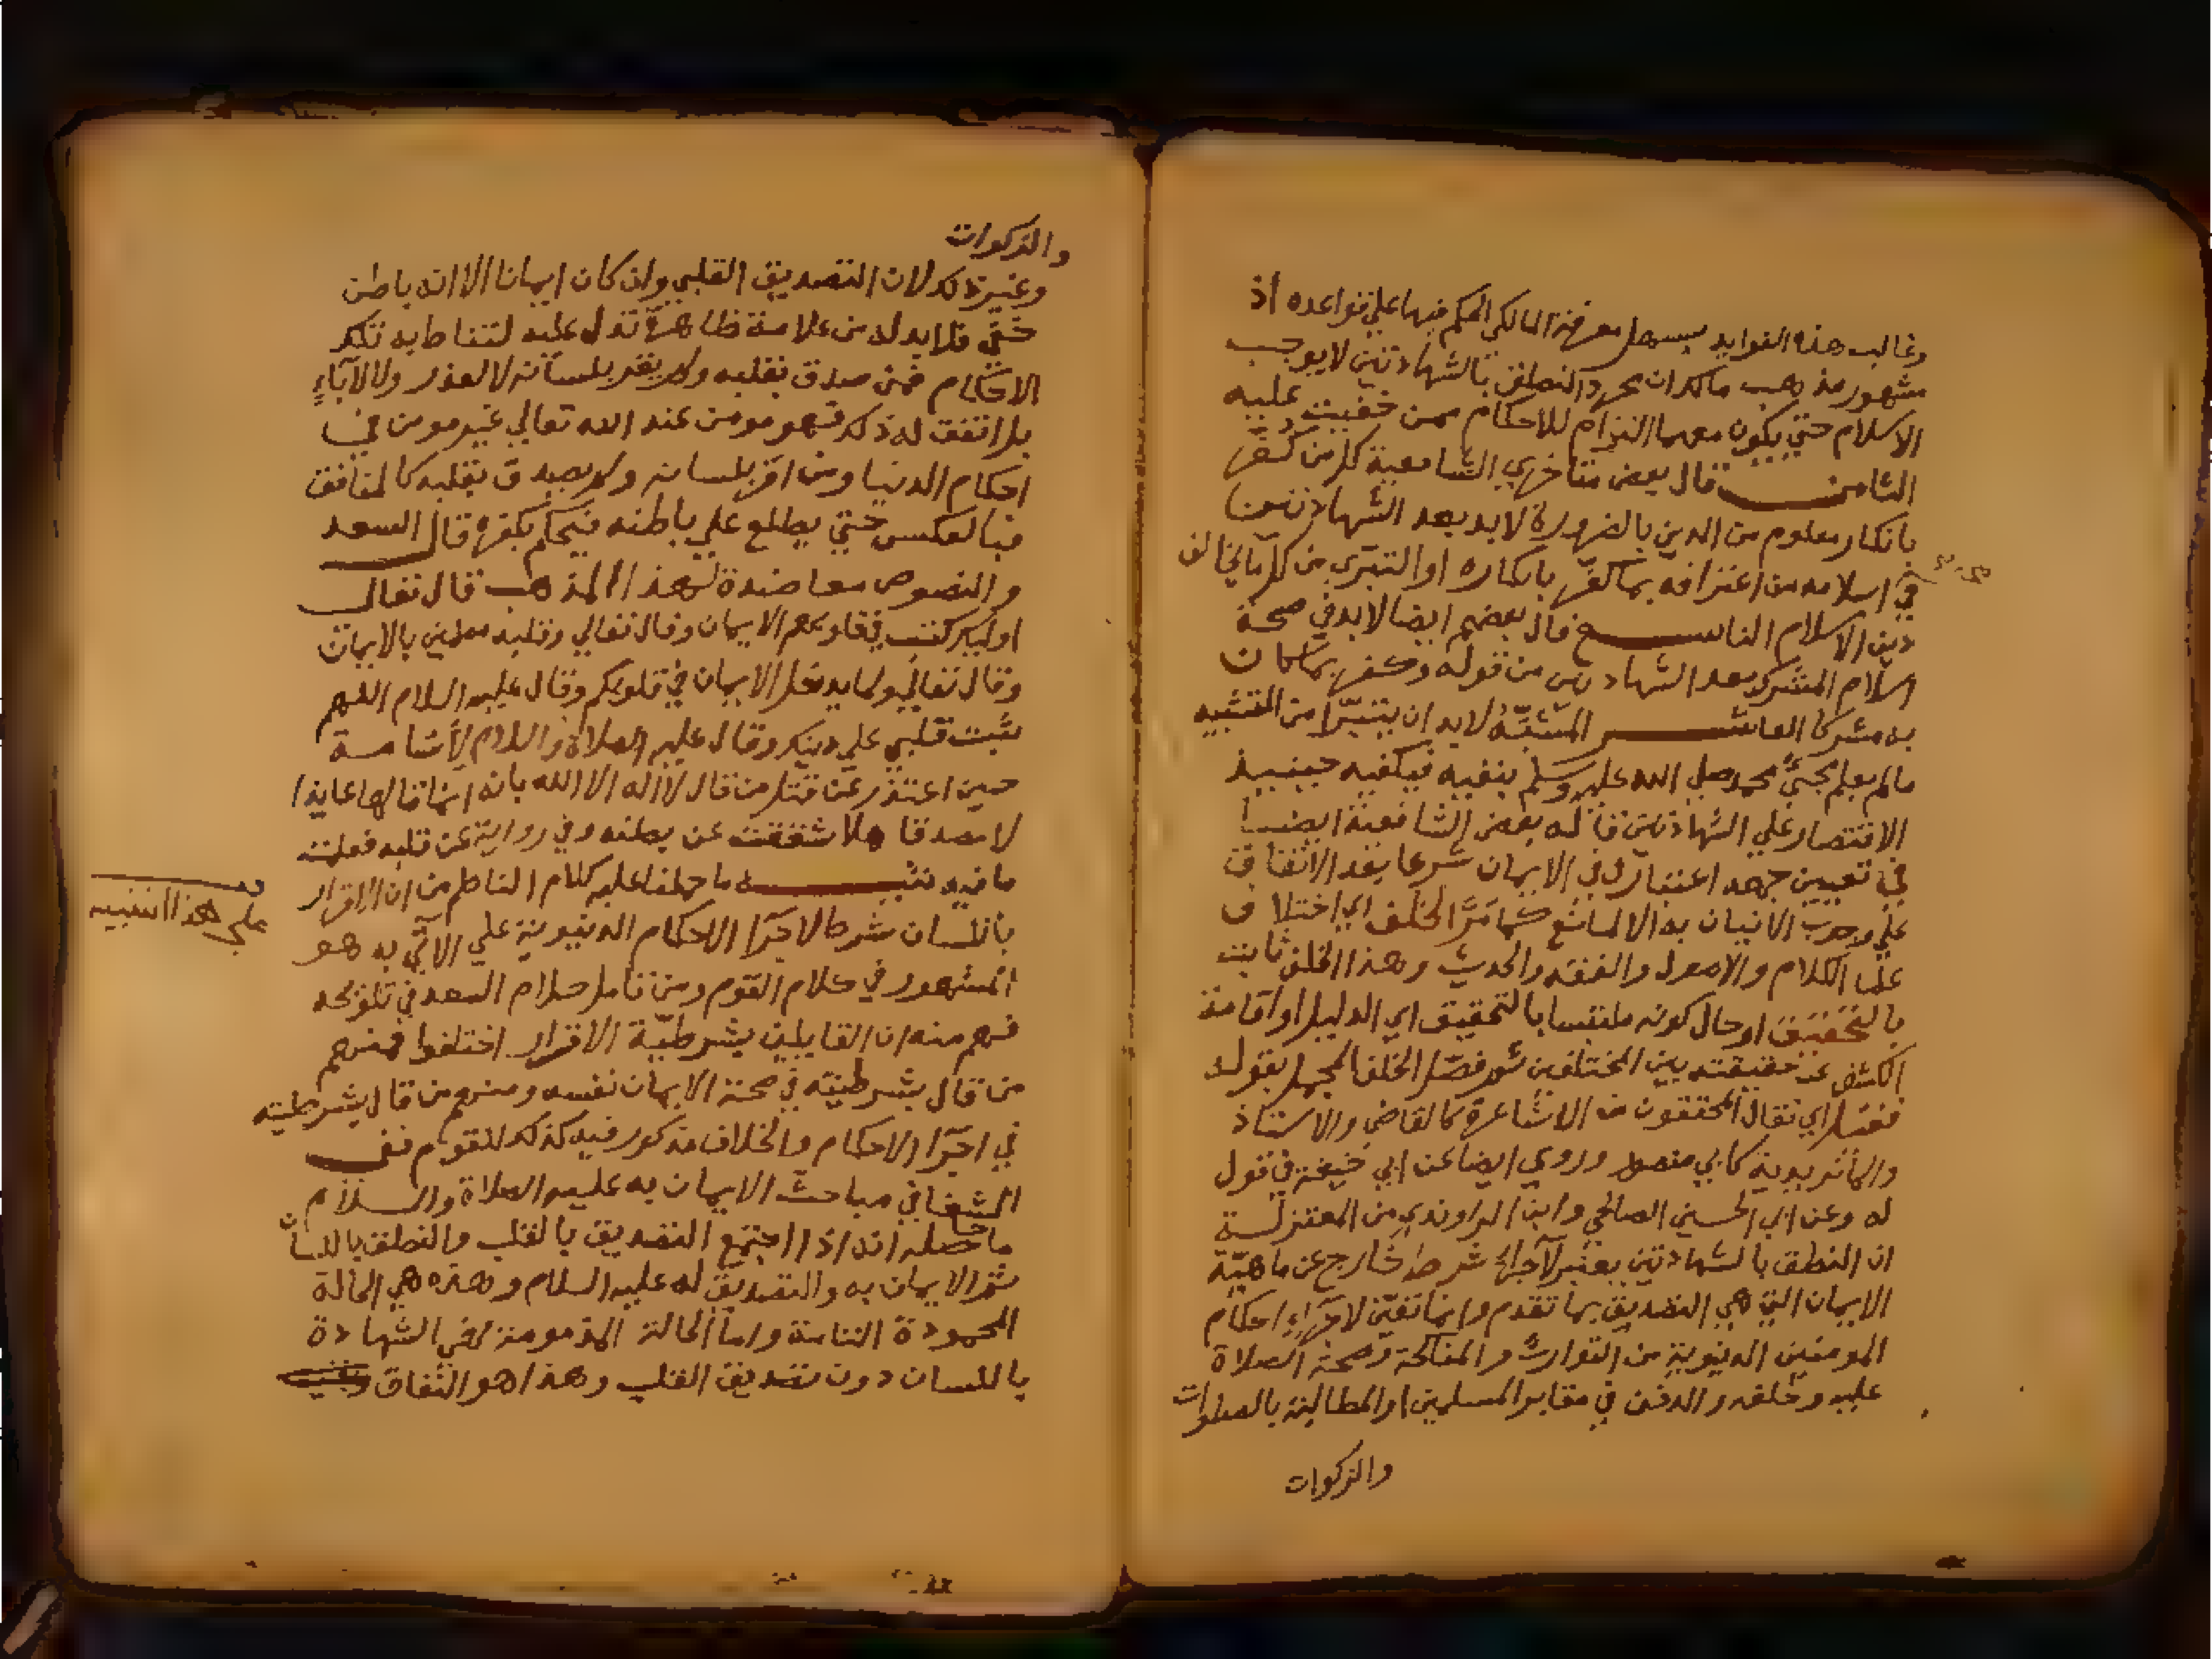 وغالب هذه الفوايد يسهل معرفة المالكي الحكم فيها علي قواعده اذ
مشهور مذهب مالك ان مجرد النطق بالشهادتين لا يوجب
الاسلام حتي يكون معهما التزام للاحكام ممن خفيت عليه
الثامن قال بعض متاخري الشافعية كل من كفر
بانكار معلوم من الدين بالضرورة لا بد بعد الشهادتين
في اسلامه من اعترافه بما كفر بانكاره او التبري من كل ما يخالف
دين الاسلام التاسع قال بعضهم ايضا لا بد في صحة
اسلام المشرك بعد الشهادتين من قوله وكفرت بما كان
به مشركا العاشر المشبّه لا بد ان يتبرّا من التشبيه
ما لم يعلم مجيّ محمد صلي الله عليه وسلم بنفيه فيكفيه حينيذ
الاقتصار علي الشهادتين قاله بعض الشافعية ايضا
في تعيين جهة اعتباره في الايمان شرعا بعد الاتفاق
علي وجوب الاتيان به الا لمانع كما مرّ الخلف اي اختلاف
علما الكلام والاصول والفقه والحديث وهذا الخلف ثابت
بالتحقيق او حال كونه ملتبسا بالتحقيق اي الدليل او اقامة
الكشف عن حقيقته بين المختلفين ثم فصّل الخلف المجمل بقوله
فقيل اي فقال المحققون من الاشاعرة كالقاضي والاستاذ
والماتريدية كابي منصور وروي ايضا عن ابي حنيفة في قول
له وعن ابي الحسين الصالحي وابن الراوندي من المعتزلة
ان النطق بالشهادتين يعتبر لاجرا شرط خارج عن ماهيّة
الايمان التي هي التصديق بما تقدم وانما تعيّن لاجراء احكام
المومنين الدنيوية من التوارث والمناكحة وصحة الصلاة
عليه وخلفه والدفن في مقابر المسلمين والمطالبة بالصلوات
والزكوات
والزكوات
وغير ذلك لان التصديق القلبي وان كان ايمانا الا انه باطن
خفيّ فلا بد له من علامة ظاهرة تدل عليه لتناط به تلك
الاحكام فمن صدق بقلبه ولم يقر بلسانه لا لعذر ولا لاباء
بل اتفق له ذلك فهو مومن عند الله تعالي غير مومن في
احكام الدنيا ومن اقر بلسانه ولم يصدق بقلبه كالمنافق
فبالعكس حتي يطلع علي باطنه فيحكم بكفره قال السعد
والنصوص معاضدة لهذا المذهب قال تعالي
اوليك كتب في قلوبهم الايمان وقال تعالي وقلبه مطمين بالايمان
وقال تعالي ولما يدخل الايمان في قلوبكم وقال عليه السلام اللهم
ثبت قلبي علي دينك وقال عليه الصلاة والسلام لاسامة
حين اعتذر عن قتل من قال لا اله الا الله بانه انما قالها عايذا
لا مصدقا هلا شققت عن بطنه وفي رواية عن قلبه فعلمت
ما فيه تنبيه ما حملنا عليه كلام الناظم من ان الاقرار
علي هذا التنبيه
باللسان شرط لاجرا الاحكام الدنيوية علي الاتي به هو
المشهور في كلام القوم ومن تامل كلام السعد في تلويحه
فهم منه ان القايلين بشرطيّة الاقرار اختلفوا فمنهم
من قال بشرطيته في صحة الايمان نفسه ومنهم من قال بشرطيته
في اجرا الاحكام والخلاف مذكور فيه كذلك للقوم ففي
الشفا في مباحث الايمان به عليه الصلاة والسلام
ما حاصله انه اذا اجتمع التصديق بالقلب والنطق باللسان
ثم الايمان به والتصديق له عليه السلام وهذه هي الحالة
المحمودة التامة واما الحالة المذمومة فهي الشهادة
باللسان دون تصديق القلب وهذا هو النفاق